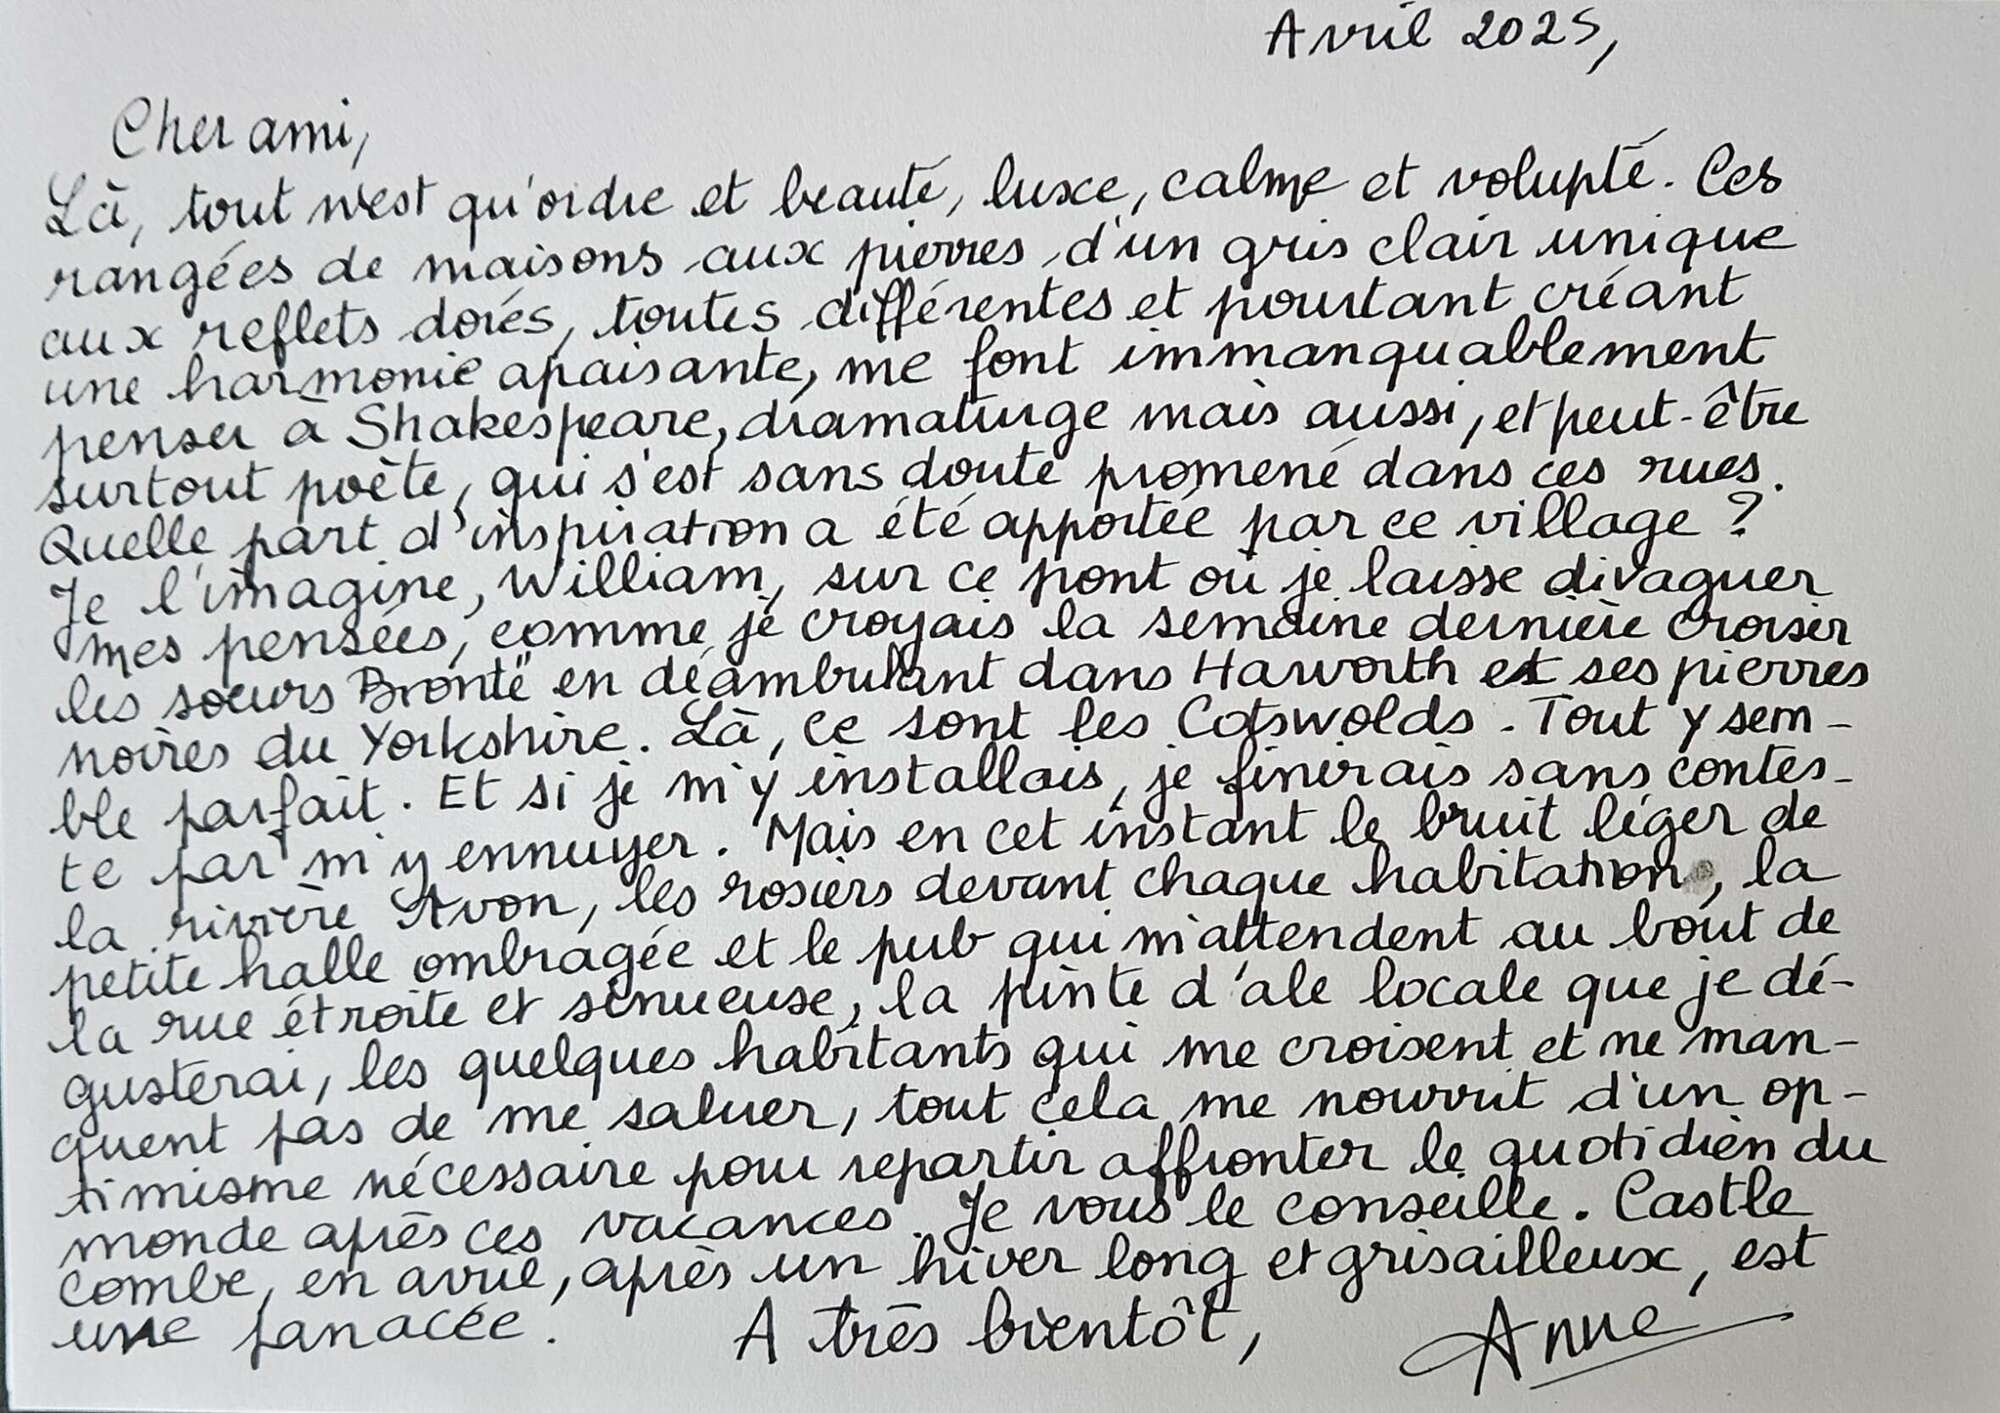 Avril 2025,
Cher ami,
Là, tout n'est qu'ordre et beauté, luxe, calme et volupté. Ces
rangées de maisons aux pierres d'un gris clair unique
aux reflets dorés, toutes différentes et pourtant créant
une harmonie apaisante, me font immanquablement
penser à Shakespeare, dramaturge mais aussi, et peut-être
surtout poète, qui s'est sans doute promené dans ces rues.
Quelle part d'inspiration a été apportée par ce village ?
Je l'imagine, William, sur ce pont où je laisse divaguer
mes pensées, comme je croyais la semaine dernière croiser
les sœurs Brontë en déambulant dans Haworth et ses pierres
noires du Yorkshire. Là, ce sont les Cotswolds. Tout y sem-
ble parfait. Et si je m'y installais, je finirais sans contes-
te par m'y ennuyer. Mais en cet instant le bruit léger de
la rivière Avon, les rosiers devant chaque habitation, la
petite halle ombragée et le pub qui m'attendent au bout de
la rue étroite et sinueuse, la pinte d'ale locale que je dé-
gusterai, les quelques habitants qui me croisent et ne man-
quent pas de me saluer, tout cela me nourrit d'un op-
timisme nécessaire pour repartir affronter le quotidien du
monde après ces vacances. Je vous le conseille. Castle
combe, en avril, après un hiver long et grisailleux, est
une panacée. A très bientôt, Anne